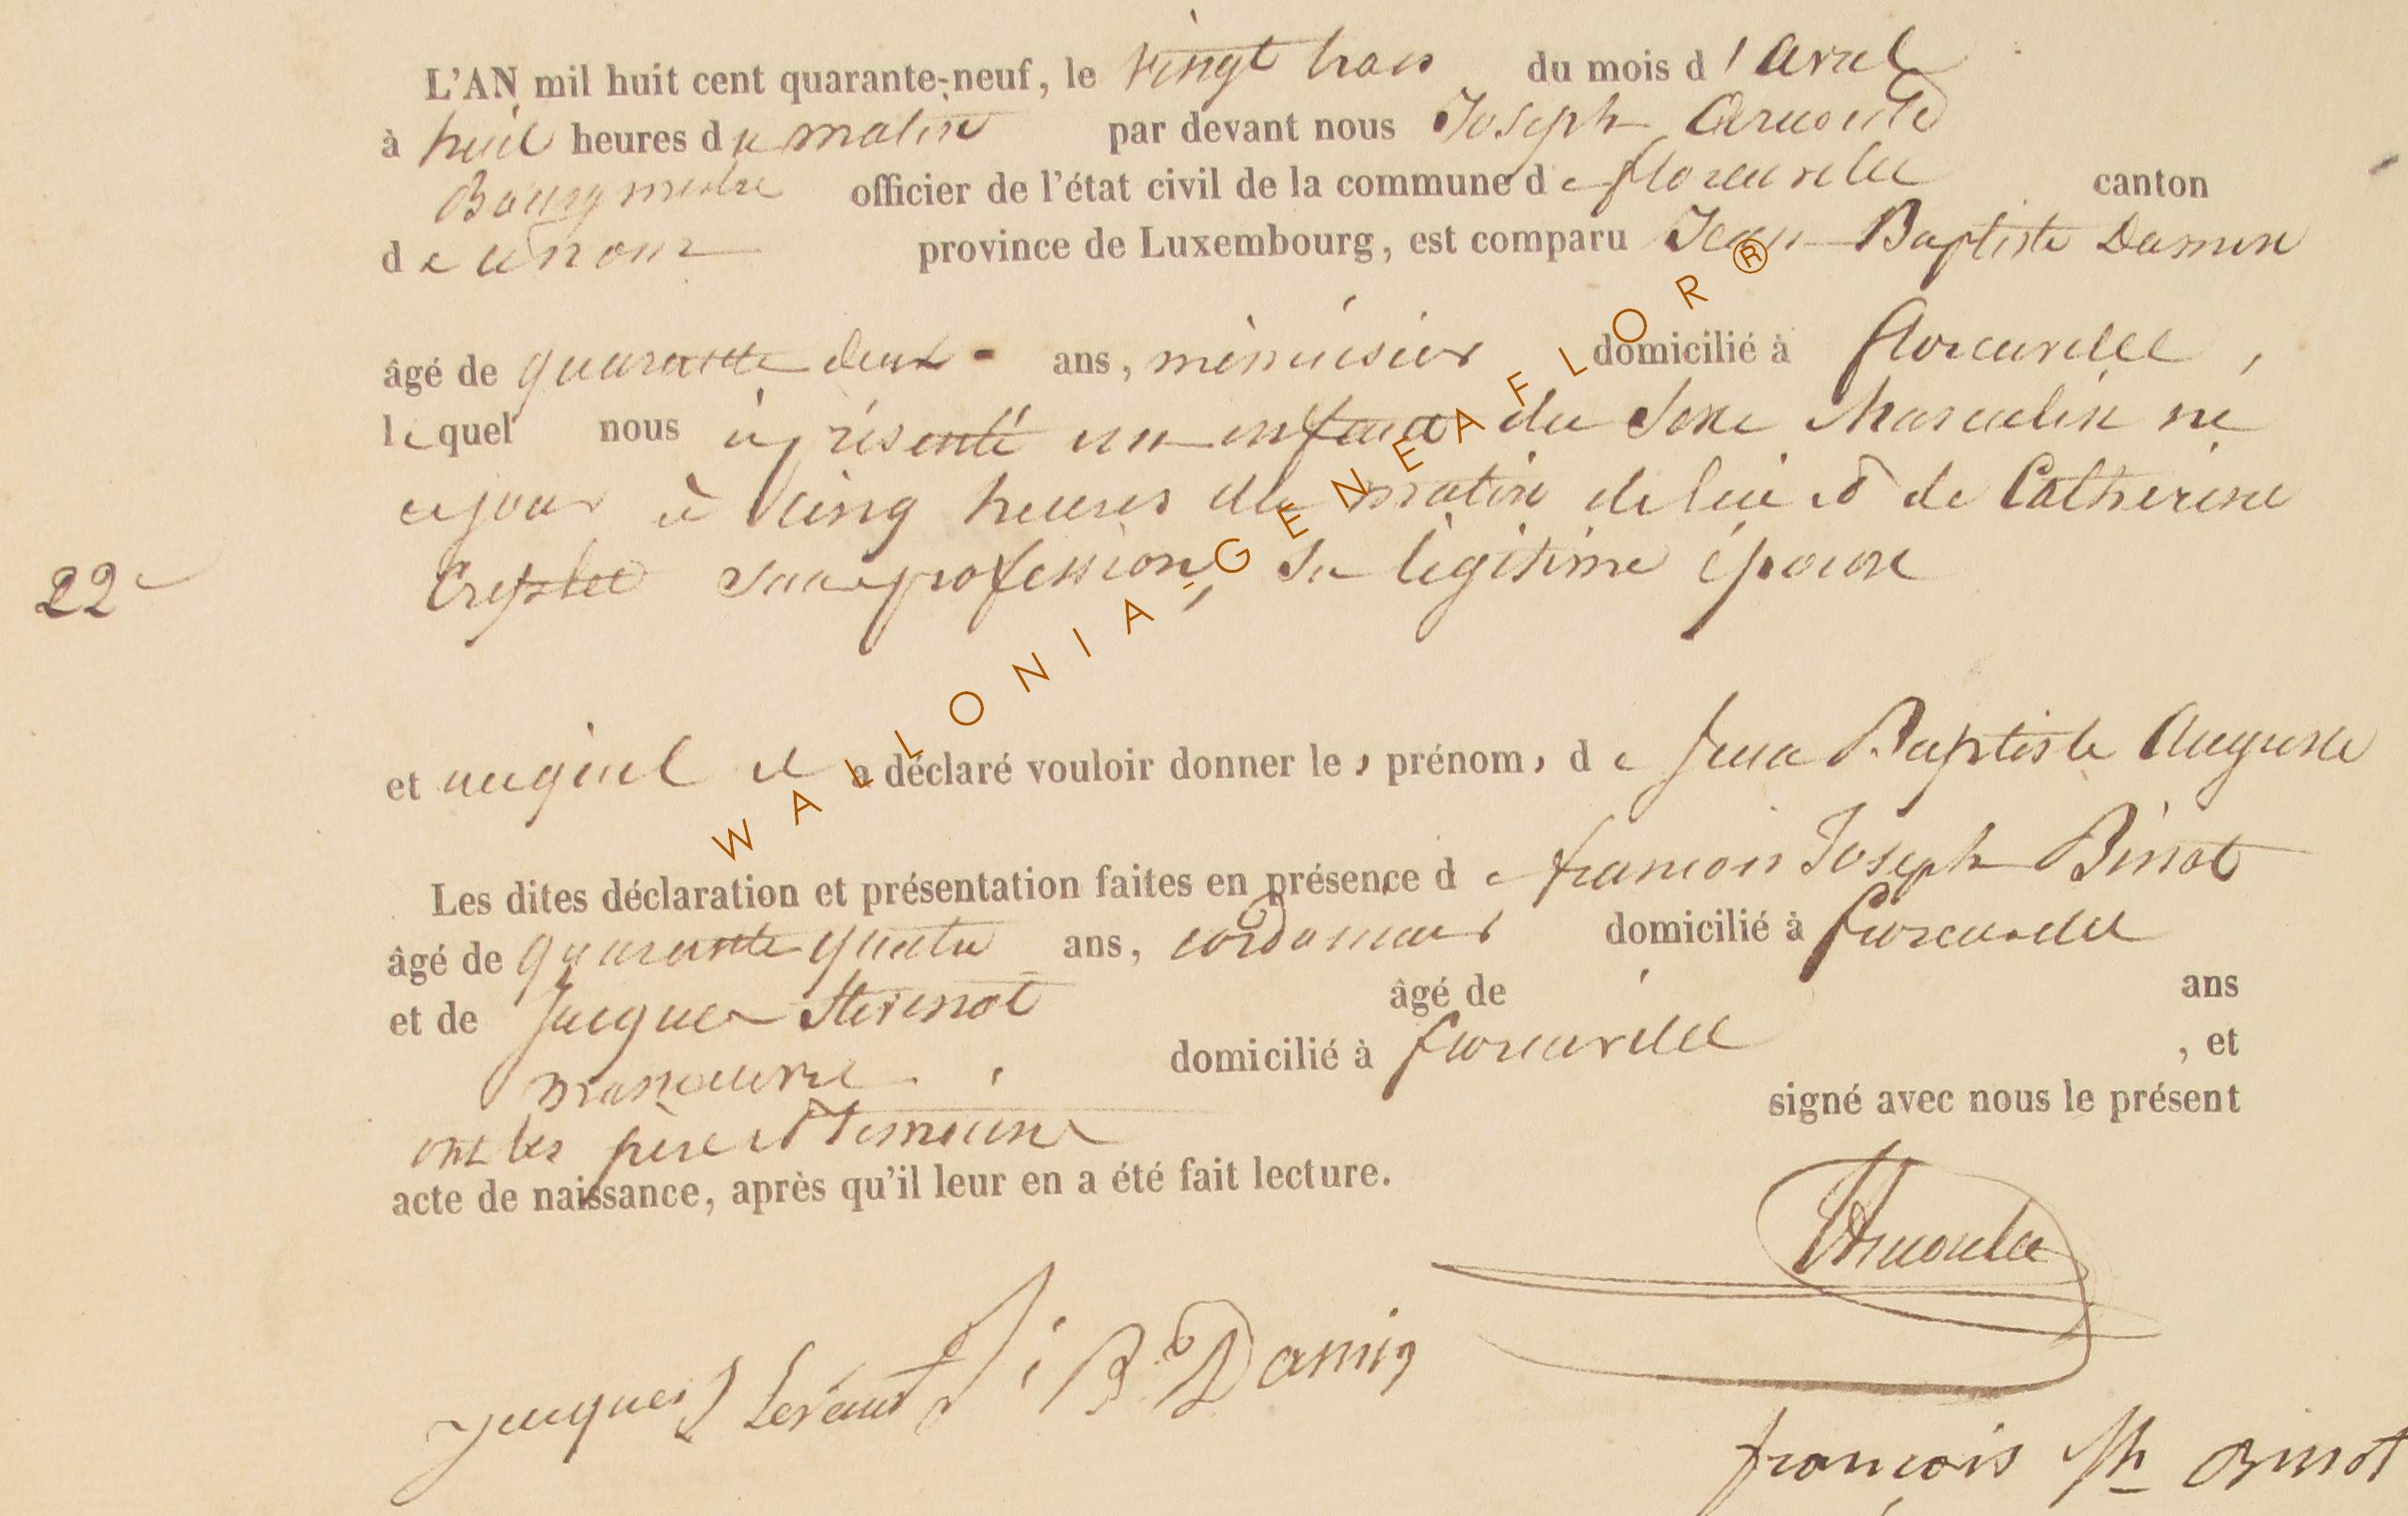 L'AN mil huit cent quarante-neuf, le vingt trois du mois d'avril
à huit heures du matin par devant nous Joseph
Bourgmestre officier de l'état civil de la commune de florenville canton
de idem province de Luxembourg, est comparu Jean Baptiste Damin
âgé de quarante deux ans, menuisier domicilié à florenville,
lequel nous à présenté un enfant du sexe Masculin né
ce jour à cinq heures du matin de lui et de Catherine
22e
sans profession, sa légitime épouse
et auquel il a déclaré vouloir donner les prénoms de Jean Baptiste Auguste
Les dites déclaration et présentation faites en présence de françois Joseph Binot
âgé de quarante quatre ans, cordonnier domicilié à florenville
et de Jacques âgé de ans
manoeuvre, domicilié à florenville, et
ont les père et témoins signé avec nous le présent
acte de naissance, après qu'il leur en a été fait lecture.
Jacques J B Damin
françois Jh Binot
WALLONIA-GENEAFLOR®